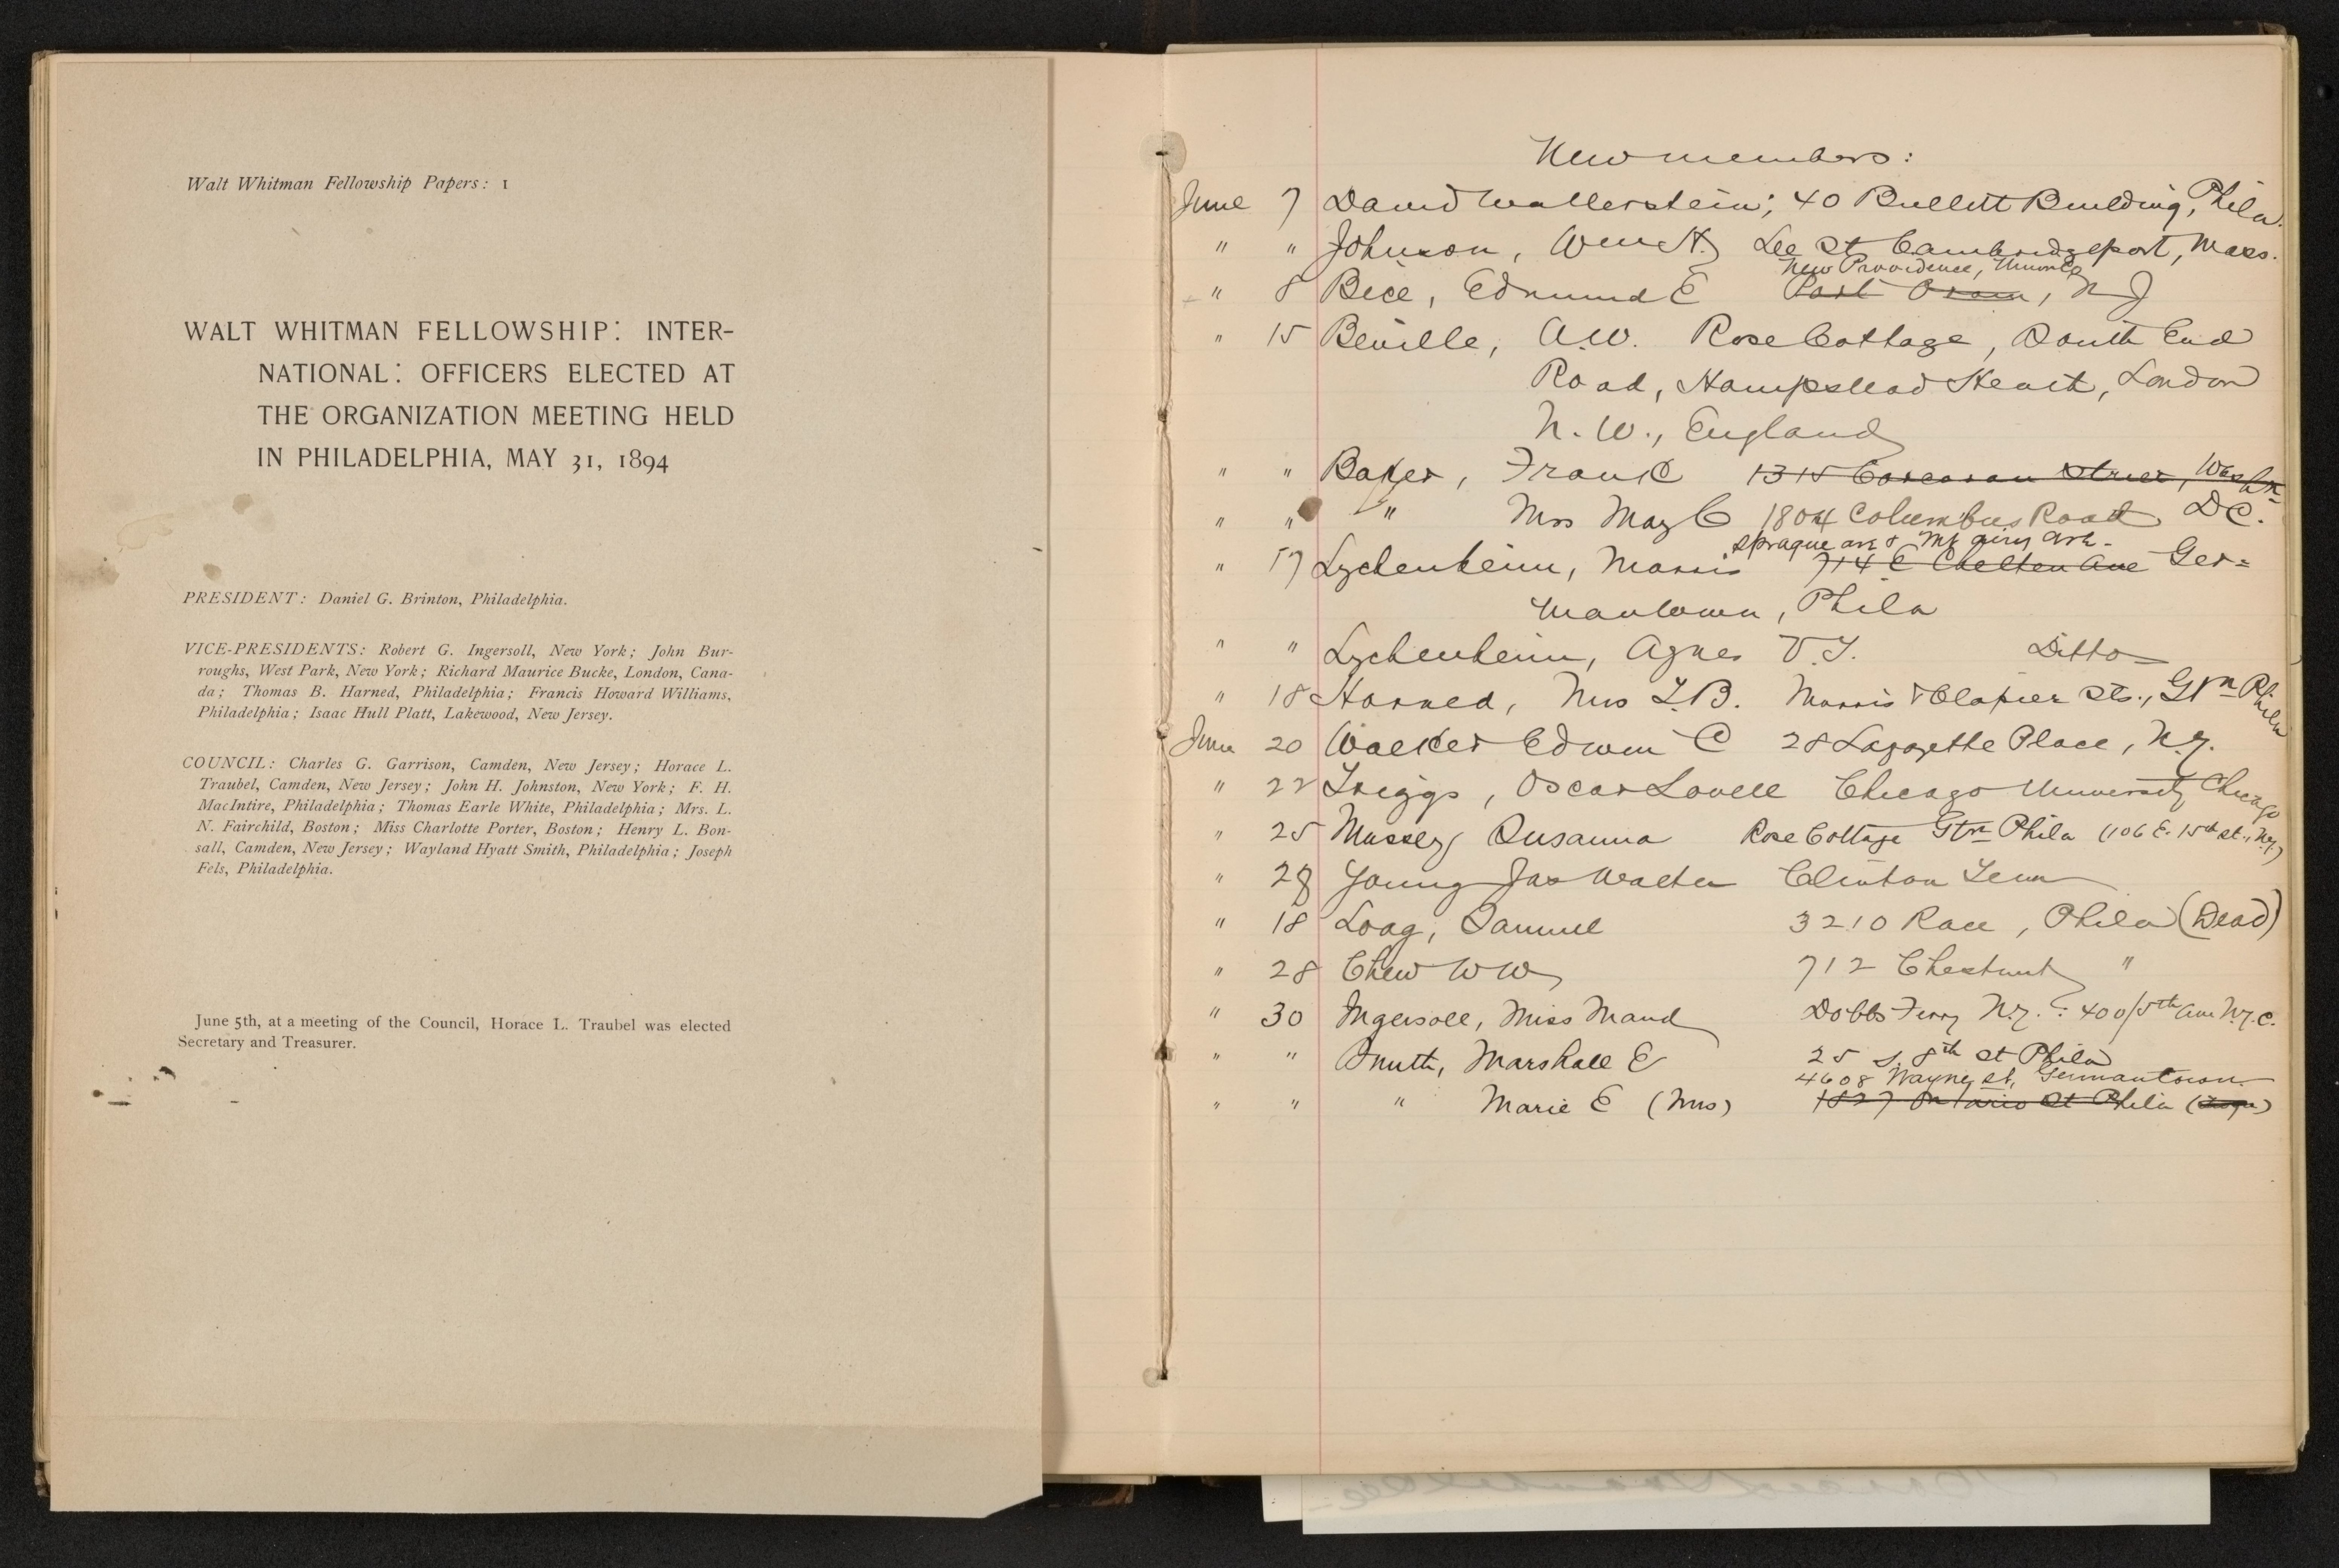 Walt Whitman Fellowship Papers: 1
WALT WHITMAN FELLOWSHIP: INTER-
NATIONAL: OFFICERS ELECTED AT
THE ORGANIZATION MEETING HELD
IN PHILADELPHIA, MAY 31, 1894
PRESIDENT: Daniel G. Brinton, Philadelphia.
VICE-PRESIDENTS: Robert G. Ingersoll, New York; John Bur-
roughs, West Park, New York; Richard Maurice Bucke, London, Cana-
da; Thomas B. Harned, Philadelphia; Francis Howard Williams,
Philadelphia; Isaac Hull Platt, Lakewood, New Jersey.
COUNCIL: Charles G. Garrison, Camden, New Jersey; Horace L.
Traubel, Camden, New Jersey; John H. Johnston, New York; F. H.
MacIntire, Philadelphia; Thomas Earle White, Philadelphia; Mrs. L.
N. Fairchild, Boston; Miss Charlotte Porter, Boston; Henry L. Bon-
sall, Camden, New Jersey; Wayland Hyatt Smith, Philadelphia; Joseph
Fels, Philadelphia.
June 5th, at a meeting of the Council, Horace L. Traubel was elected
Secretary and Treasurer.
New members:
June 7 David Wallerstein; 40 Bullitt Building, Phila.
" " Johnson, Wm H. Lee St Cambridgeport, Mass.
New Providence, Union Co
" 8 Bice, Edmund E Port Oram, N J
" 15 Beville, A.W. Rose Cottage, South End
Road, Hampstead Heath, London
N. W., England
" " Baker, Frank 1315 Corcoran Street, Washn
" " " Mrs May C 1804 Columbus Road DC.
Sprague ave & Mt airy ave.
" 17 Lychenheim, Morris 714 E Chelten Ave Ger=
mantown, Phila
" " Lychenheim, Agnes V.T. Ditto
" 18 Harned, Mrs T.B. Morris & Clapier Sts., Gtn Phila
June 20 Walker Edwin C 28 Lafayette Place, N.Y.
" 22 Triggs, Oscar Lovell Chicago University Chicago
" 25 Massey, Susanna Rose Cottage Gtn Phila (106 E. 15th st., N.Y.)
" 28 Young Jas Walter Clinton Tenn
" 18 Loag, Samuel 3210 Race, Phila (Dead)
" 28 Chew W W 712 Chestnut "
" 30 Ingersoll, Miss Maud Dobbs Ferry N.Y. : 400/5th Ave N.Y.C.
" " Smith, Marshall E 25 S. 8th St Phila
4608 Wayne st, Germantown
" " " Marie E (Mrs) 1827 Ontario St Phila